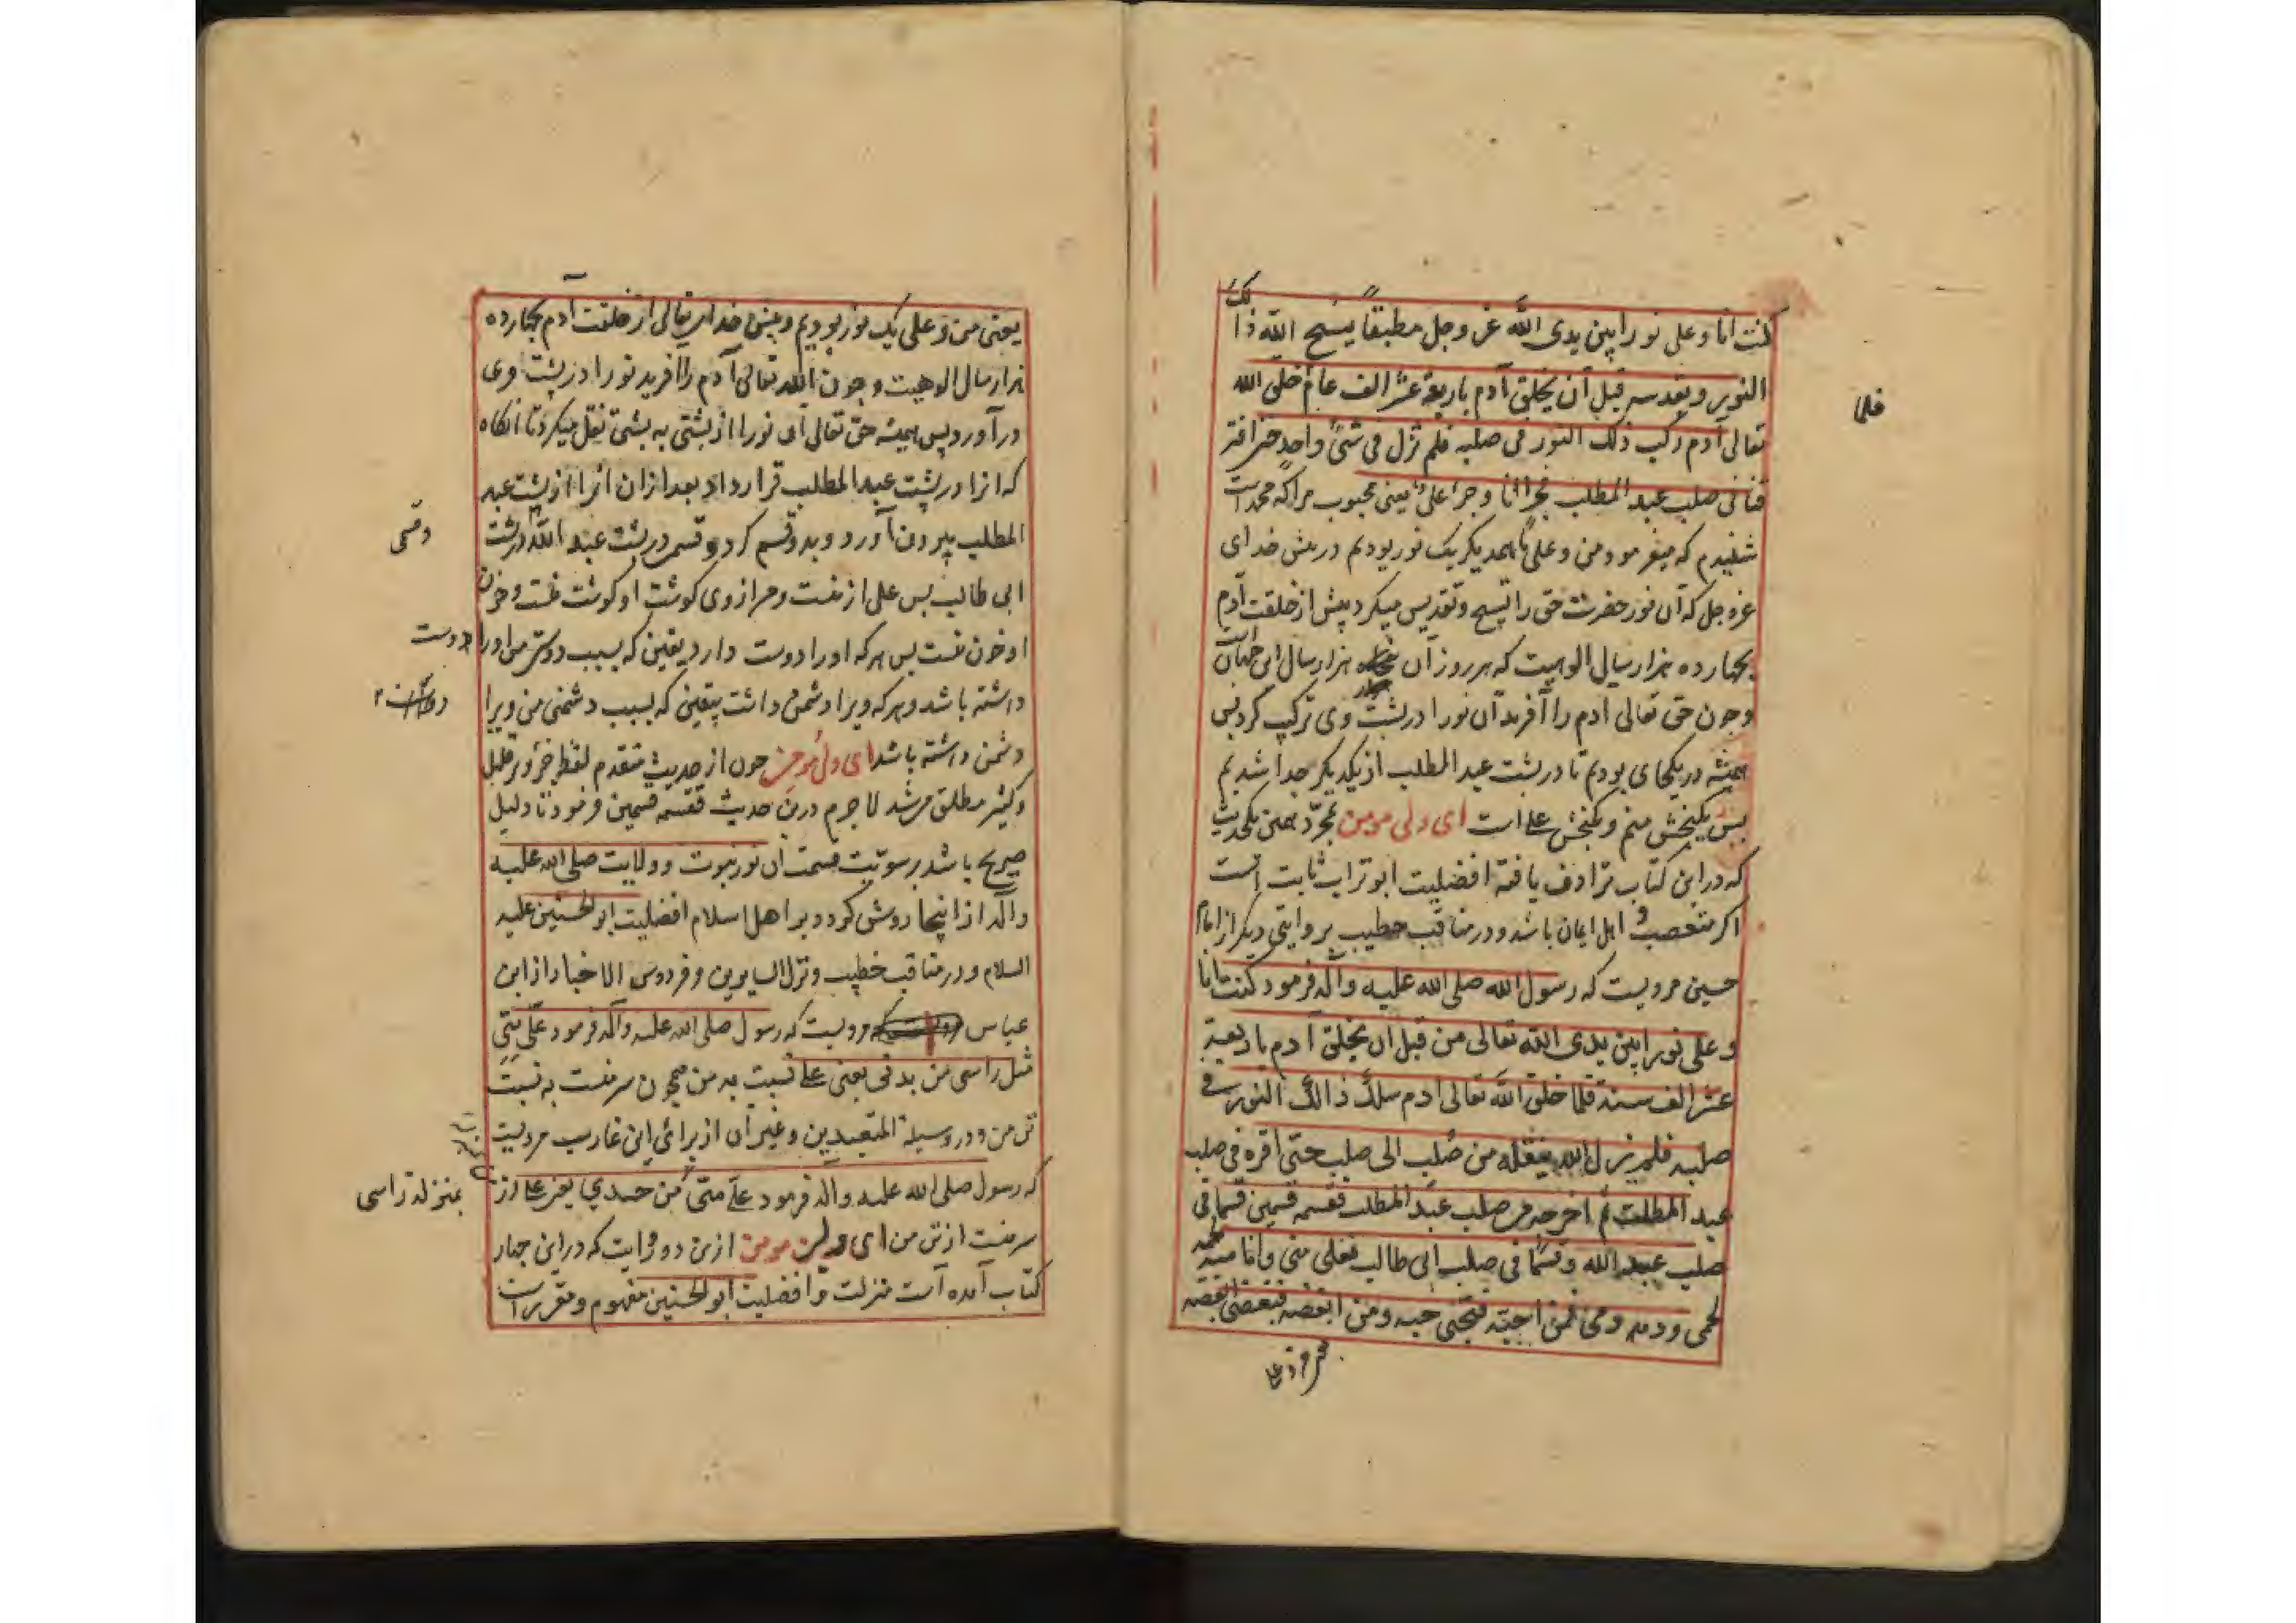 كنت انا وعلى نورا بين يدى الله عز وجل مطبقاً يسبح الله ذالك
النور ويقدسه قبل آن يخلق آدم باربعة عشر الف عام خلق الله
فلما
تعالى آدم ركب ذلك النور فى صلبه فلم نزل فى شئ واحد حتى افتر
قنا فى صلب عبد المطلب فجزا انا وجزا على يعنى محبوب مرا كه محمد است
شنيدم كه ميفرمود من وعلى با همديكر يك نور بوديم در پيش خداى
عز وجل كه آن نور حضرت حق را تسبيح وتقديس ميكرد پيش از خلقت آدم
بچهارده هزار سال الوهيت كه هر روز آن هزار سال اين جهان است
وچون حق تعالى ادم را آفريد آن نور را در پشت وى تركيب كرد پس
هميشه در يكجاى بوديم تا در پشت عبد المطلب از يكديكر جدا شديم
پس يكبخش منم ويكبخش على است اى ولى مومن بمجرّد همين يكحديث
كه در اين كتاب ترادف يافته افضليت ابو تراب ثابت است
اكر متعصب و اهل ايمان باشد ودر مناقب خطيب بروايتى ديكر از امام
حسين مرويست كه رسول الله صلى الله عليه وآله فرمود كنت انا
وعلى نورا بين يدى الله تعالى من قبل ان يخلق آدم باربعة
عشر الف سنة فلما خلق الله تعالى ادم سلك ذالك النور فى
صلبه فلم يزل الله ينقله من صلب الى صلب حتى اقره فى صلب
عبد المطلب ثم اخرجه من صلب عبد المطلب فقسمه قسمين قسما فى
صلب عبد الله وقسما فى صلب ابى طالب فعلى منى وانا منه لحمه
لحمى ودمه دمى فمن احبّه فبحبى حبه ومن ابغضه فببغضى ابغضه
يعنى من وعلى يك نور بوديم در پيش خداى تعالى از خلقت آدم بچهارده
هزار سال الوهيت وچون الله تعالى آدم را آفريد نور را در پشت وى
در آورد پس هميشه حق تعالى آن نور را از پشتى به پشتى نقل ميكرد تا انكاه
كه انرا در پشت عبد المطلب قرار داد بعد ازان انرا از پشت عبد
المطلب بيرون آورد وبدو قسم كرد قسمى در پشت عبد الله در پشت
وقسمى
ابى طالب پس على از منست ومن از وى كوشت او كوشت منست وخون
او خون منست پس هركه او را دوست دارد يقين كه بسبب دوستى من او را دوست
داشته باشد وهركه ويرا دشمن داشت يقين كه بسبب دشمنى من ويرا
دشمن داشته باشد اى ولى مومن چون از حديث متقدم لفظ جزو بر قليل
وكثير مطلق مى شد لا جرم درين حديث فقسمه قسمين فرمود تا دليل
صريح باشد بر سويت قسمت آن نور نبوت وولايت صلى الله عليه
وآله از اينجا روشن كردد بر اهل اسلام افضليت ابو الحسنين عليه
السلام ودر مناقب خطيب ونزل السايرين وفردوس الاخبار از ابن
عباس مرويست كه رسول صلى الله عليه وآله فرمود علىّ منّى
مثل راسى من بدنى يعنى على نسبت به من همچون سر منست به نسبت
تن من ودر وسيلة المتعبدين وغير آن از براى ابن عازب مرويست
كه رسول صلى الله عليه وآله فرمود علىّ منّى من جسدي يعنى على از
بمنزلة راسى
سر منست از تن من اى ولى مومن ازين دو روايت كه در اين چهار
كتاب آمده است منزلت وافضليت ابو الحسنين مفهوم ومقرر است